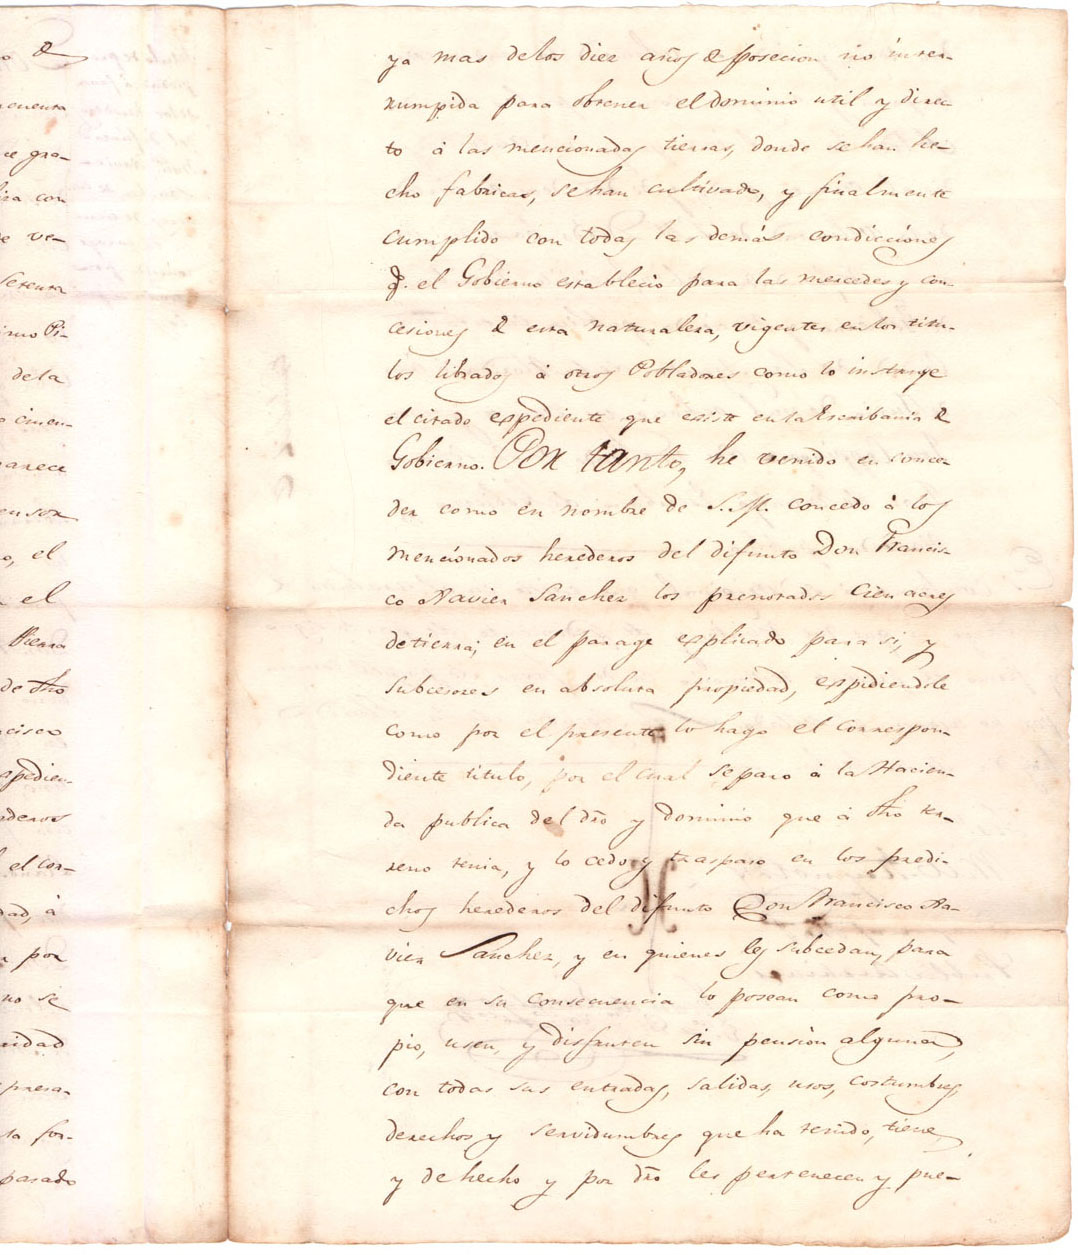 o de
cuenta
te gra-
con
e ve-
setenta
imo Pi-
de la
o cinen-
parece
ensor
o, el
n el
tierra
de dho
cisco
spedien-
deros
l el cor-
dad, à
n por
no se
ridad
presa-
ta for-
pasado
ya mas delos diez años de posecion no inter-
rumpida para obtener el dominio util y direc-
to à las mencionadas tierras, donde se han he-
cho fabricas, se han cultivado, y finalmente
cumplido con todas las demás condicciónes
q.e el Gobierno establecio para las mercedes y con-
cesiones de esta naturaleza, vigentes en los titu-
los librados à otros Pobladores como lo instruye
el citado expediente que existe en la Escribania de
Gobierno. Por tanto, he venido en conce-
der como en nombre de S. M. concedo à los
mencionados herederos del difunto Don Francis-
co Xavier Sanchez los prenotados Cien acres
de tierra; en el parage explicado para si, y
subcesores en absoluta propiedad, expidiendole
como por el presente lo hago el correspon-
diente titulo, por el cual separo à la Hacien-
da publica del dro y dominio que à dho ter-
reno tenia, y lo cedo y traspaso en los predi-
chos herederos del difunto Don Francisco Xa-
vier Sanchez, y en quienes les subcedan, para
que en su consecuencia lo posean como pro-
pio, usen, y disfruten sin pensión alguna,
con todas sus entradas, salidas, usos, costumbres,
derechos y servidumbres que ha tenido, tiene
y de hecho y por dro les pertenecen y pue-